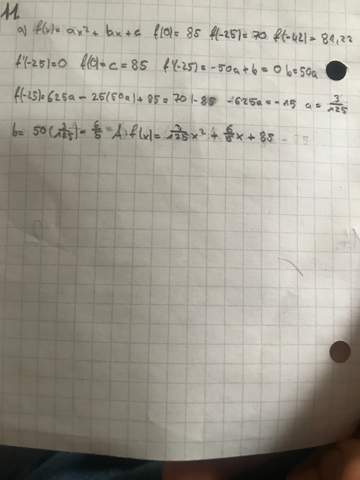 11
a) f(x) = ax² + bx + c f(0) = 85 f(-25) = 70 f(-42) = 81,22
f'(-25) = 0 f(0) = c = 85 f'(-25) = -50a + b = 0 b = 50a
f(-25) = 625a - 25(50a) + 85 = 70 |-85 -625a = -15 a = 3/125
b = 50(3/125) = 6/5 A: f(x) = 3/125 x² + 6/5 x + 85